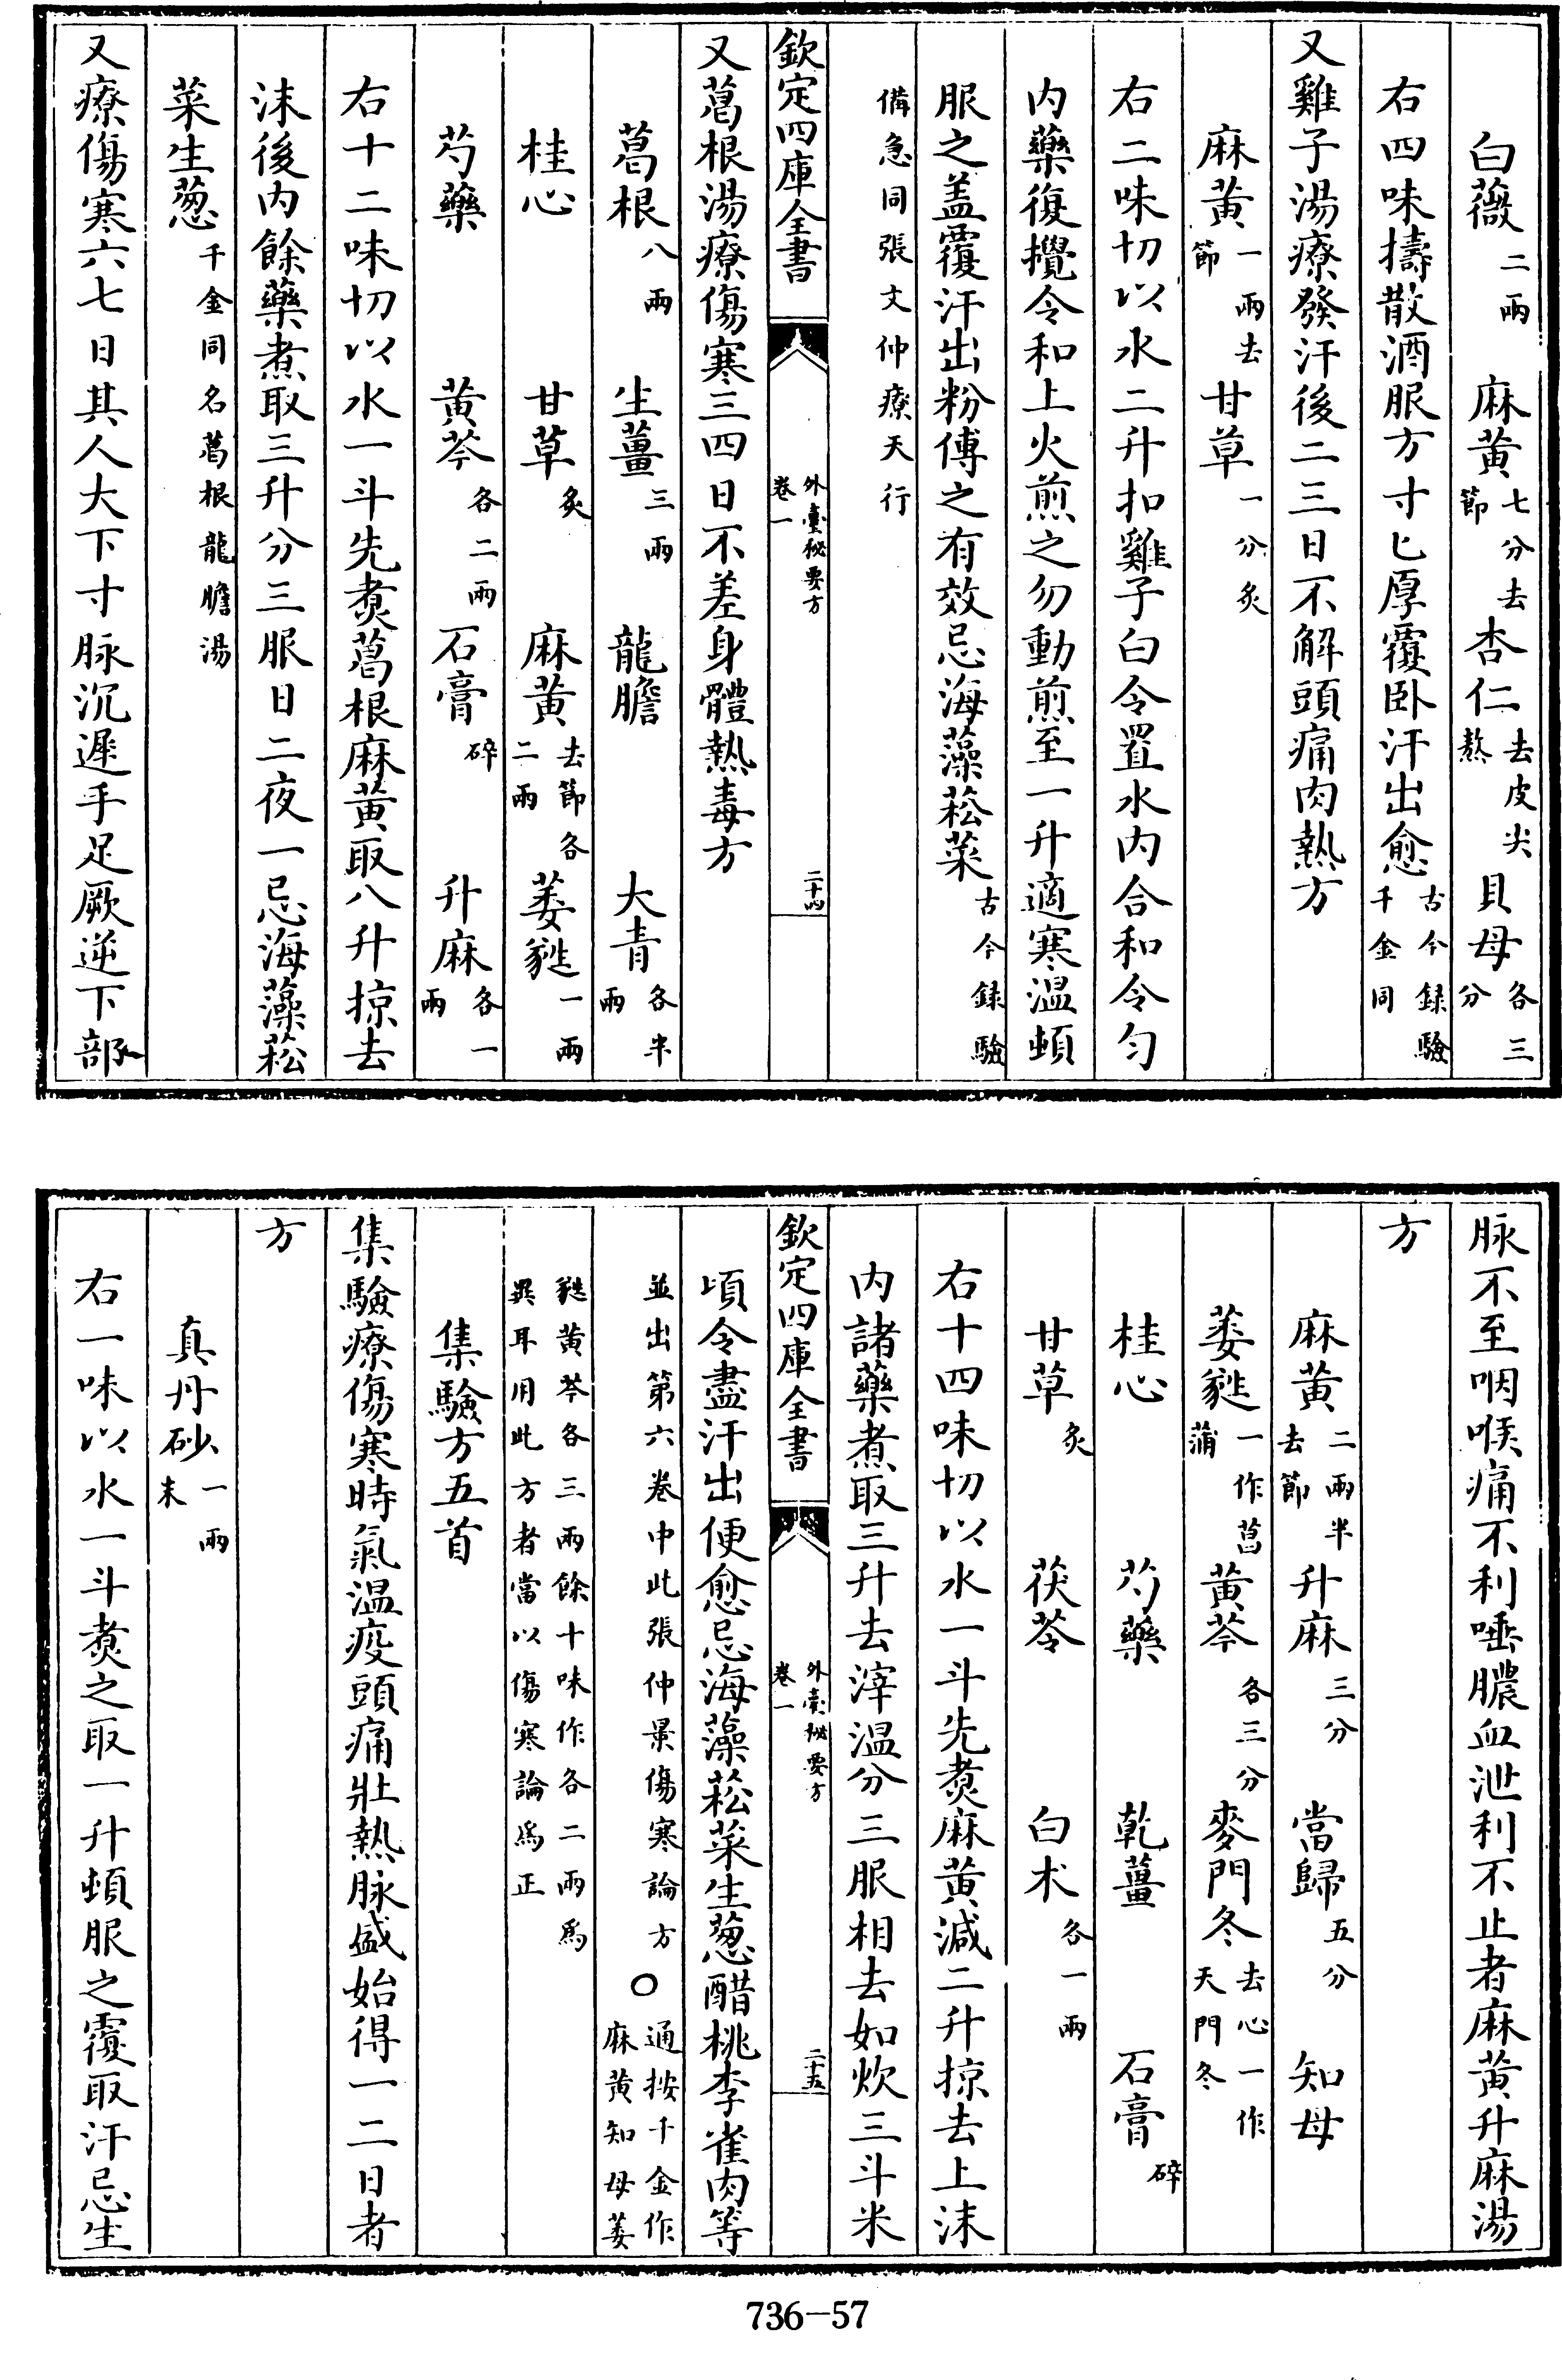 白薇二兩　麻黃七分去節　杏仁去皮尖熬　貝母各三分
右四味擣散酒服方寸匕厚覆卧汗出愈古今録驗千金同
又雞子湯療發汗後二三日不解頭痛肉熱方
麻黃一兩去節　甘草一分炙
右二味切以水二升扣雞子白令置水内合和令匀
内藥復攪令和上火煎之勿動煎至一升適寒温頓
服之盖覆汗出粉傅之有效忌海藻菘菜古今録驗
備急同張文仲療天行
欽定四庫全書　外臺秘要方卷一　二十四
又葛根湯療傷寒三四日不差身體熱毒方
葛根八兩　生薑三兩　龍膽　大青各半兩
桂心　甘草炙　麻黃去節各二兩　萎蕤一兩
芍藥　黃芩各二兩　石膏碎　升麻各一兩
右十二味切以水一斗先煑葛根麻黃取八升掠去
沫後内餘藥煮取三升分三服日二夜一忌海藻菘
菜生葱千金同名葛根龍膽湯
又療傷寒六七日其人大下寸脉沉遲手足厥逆下部
脉不至咽喉痛不利唾膿血泄利不止者麻黃升麻湯
方
麻黃二兩半去節　升麻三分　當歸五分　知母
萎蕤一作菖蒲　黃芩各三分　麥門冬去心一作天門冬
桂心　芍藥　乾薑　石膏碎
甘草炙　茯苓　白术各一兩
右十四味切以水一斗先煑麻黃減二升掠去上沫
内諸藥煮取三升去滓温分三服相去如炊三斗米
欽定四庫全書　外臺秘要方卷一　二十五
頃令盡汗出便愈忌海藻菘菜生葱醋桃李雀肉等
並出第六卷中此張仲景傷寒論方○通按千金作麻黃知母萎
蕤黃芩各三兩餘十味作各二兩爲異耳用此方者當以傷寒論爲正
集驗方五首
集驗療傷寒時氣温疫頭痛壯熱脉盛始得一二日者
方
真丹砂一兩末
右一味以水一斗煑之取一升頓服之覆取汗忌生
736—57